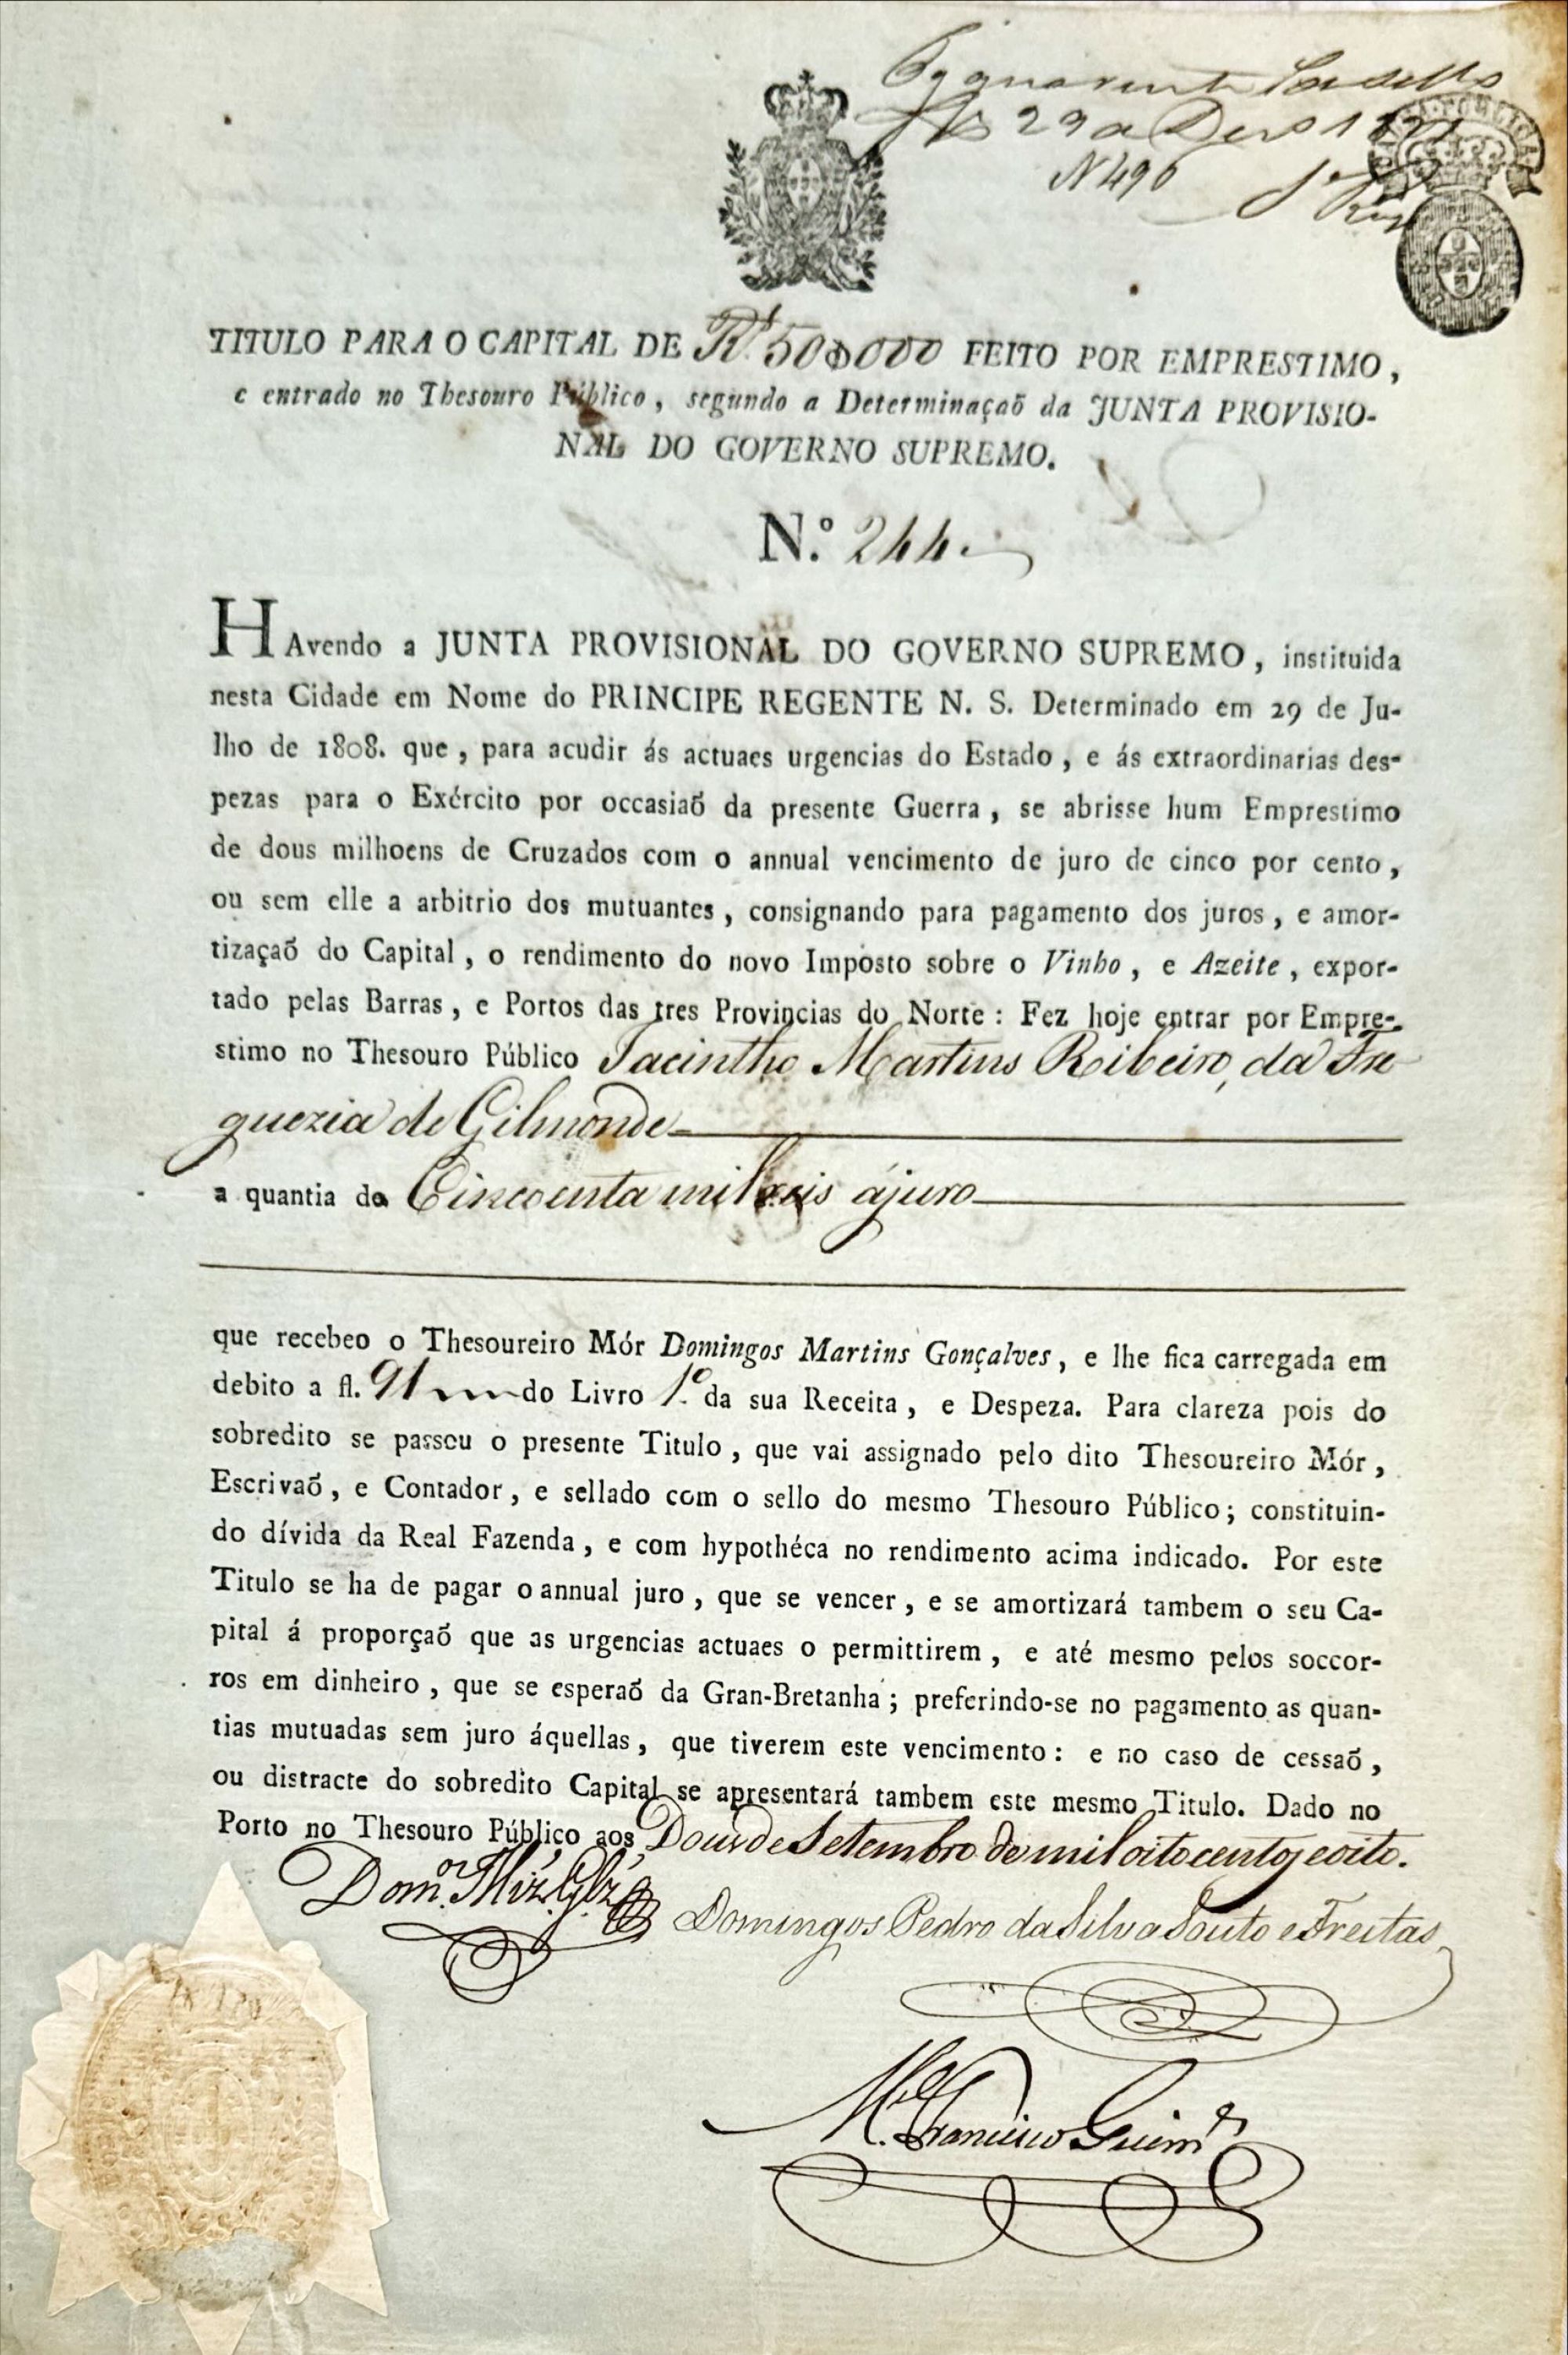 29 a 1
N 490
TITULO PARA O CAPITAL DE Rˢ 50$000 FEITO POR EMPRESTIMO,
e entrado no Thesouro Público, segundo a Determinaçaõ da JUNTA PROVISIO-
NAL DO GOVERNO SUPREMO.
N.º 244.
HAvendo a JUNTA PROVISIONAL DO GOVERNO SUPREMO, instituida
nesta Cidade em Nome do PRINCIPE REGENTE N. S. Determinado em 29 de Ju-
lho de 1808. que, para acudir ás actuaes urgencias do Estado, e ás extraordinarias des-
pezas para o Exército por occasiaõ da presente Guerra, se abrisse hum Emprestimo
de dous milhoens de Cruzados com o annual vencimento de juro de cinco por cento,
ou sem elle a arbitrio dos mutuantes, consignando para pagamento dos juros, e amor-
tizaçaõ do Capital, o rendimento do novo Imposto sobre o Vinho, e Azeite, expor-
tado pelas Barras, e Portos das tres Provincias do Norte: Fez hoje entrar por Empre-
stimo no Thesouro Público Jacintho Martins Ribeiro, da Fre
guezia de Gilmonde
a quantia de Cincoenta mil reis ájuro
que recebeo o Thesoureiro Mór Domingos Martins Gonçalves, e lhe fica carregada em
debito a fl. 91 do Livro 1.º da sua Receita, e Despeza. Para clareza pois do
sobredito se passou o presente Titulo, que vai assignado pelo dito Thesoureiro Mór,
Escrivaõ, e Contador, e sellado com o sello do mesmo Thesouro Público; constituin-
do dívida da Real Fazenda, e com hypothéca no rendimento acima indicado. Por este
Titulo se ha de pagar o annual juro, que se vencer, e se amortizará tambem o seu Ca-
pital á proporçaõ que as urgencias actuaes o permittirem, e até mesmo pelos soccor-
ros em dinheiro, que se esperaõ da Gran-Bretanha; preferindo-se no pagamento as quan-
tias mutuadas sem juro áquellas, que tiverem este vencimento: e no caso de cessaõ,
ou distracte do sobredito Capital se apresentará tambem este mesmo Titulo. Dado no
Porto no Thesouro Público aos Dous de Setembro de mil oito centos e oito.
Dom.ᵒˢ Miz. Glz.
Domingos Pedro da Silva Souto e Freitas
M.ᵉˡ Francisco Guim.ᵉˢ